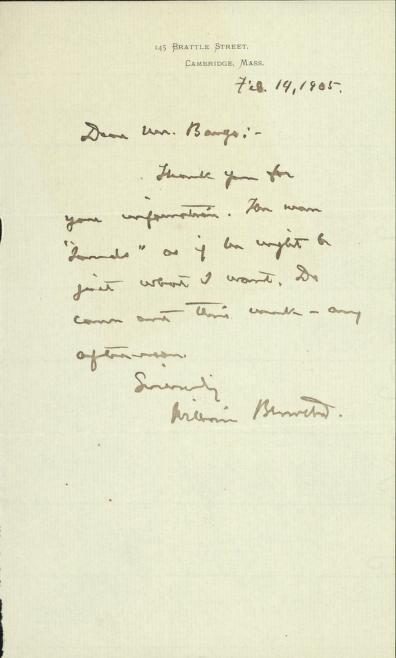 145 Brattle Street,
Cambridge, Mass.
Feb. 14, 1905.
Dear Mr. Bangs:-
Thank you for
your information. The man
"sounds" as if he might be
just what I want. Do
come out this week - any
afternoon.
Sincerely
William Brewster.